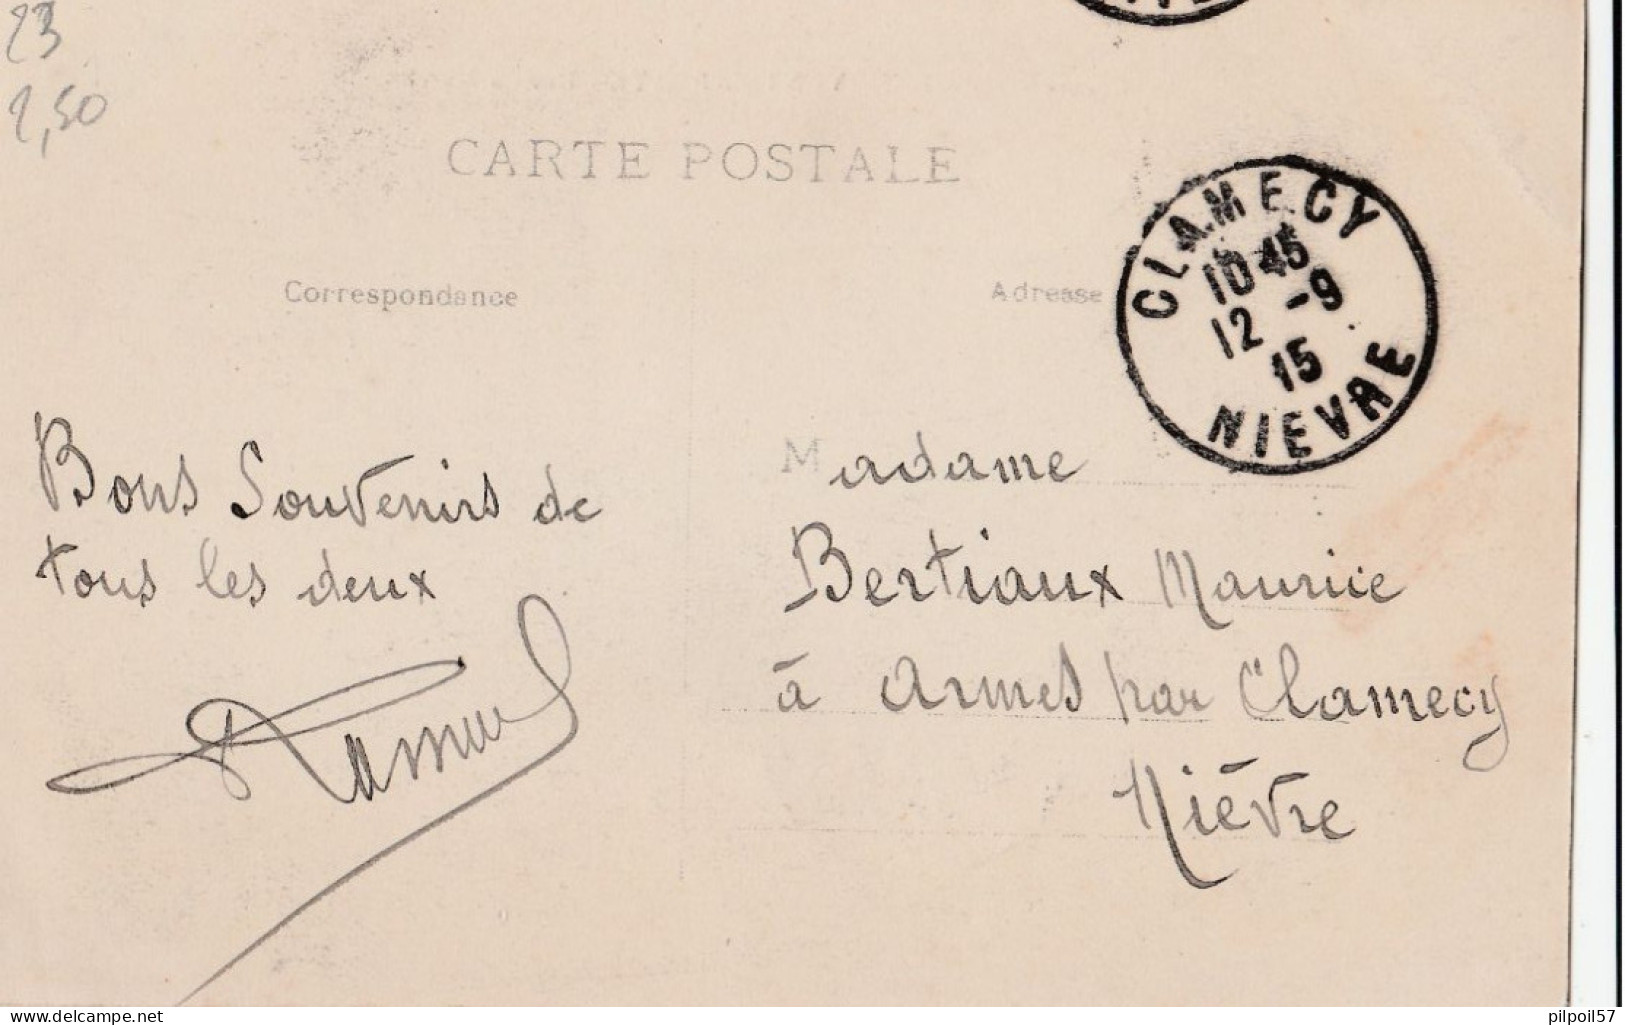 23
2,50
CARTE POSTALE
CLAMECY
10 45
12 -9
15
NIEVRE
Correspondance
Adresse
Bons Souvenirs de
tous les deux
Madame
Bertiaux Maurice
à Armes par Clamecy
Nièvre
www.delcampe.net
pilpoil57